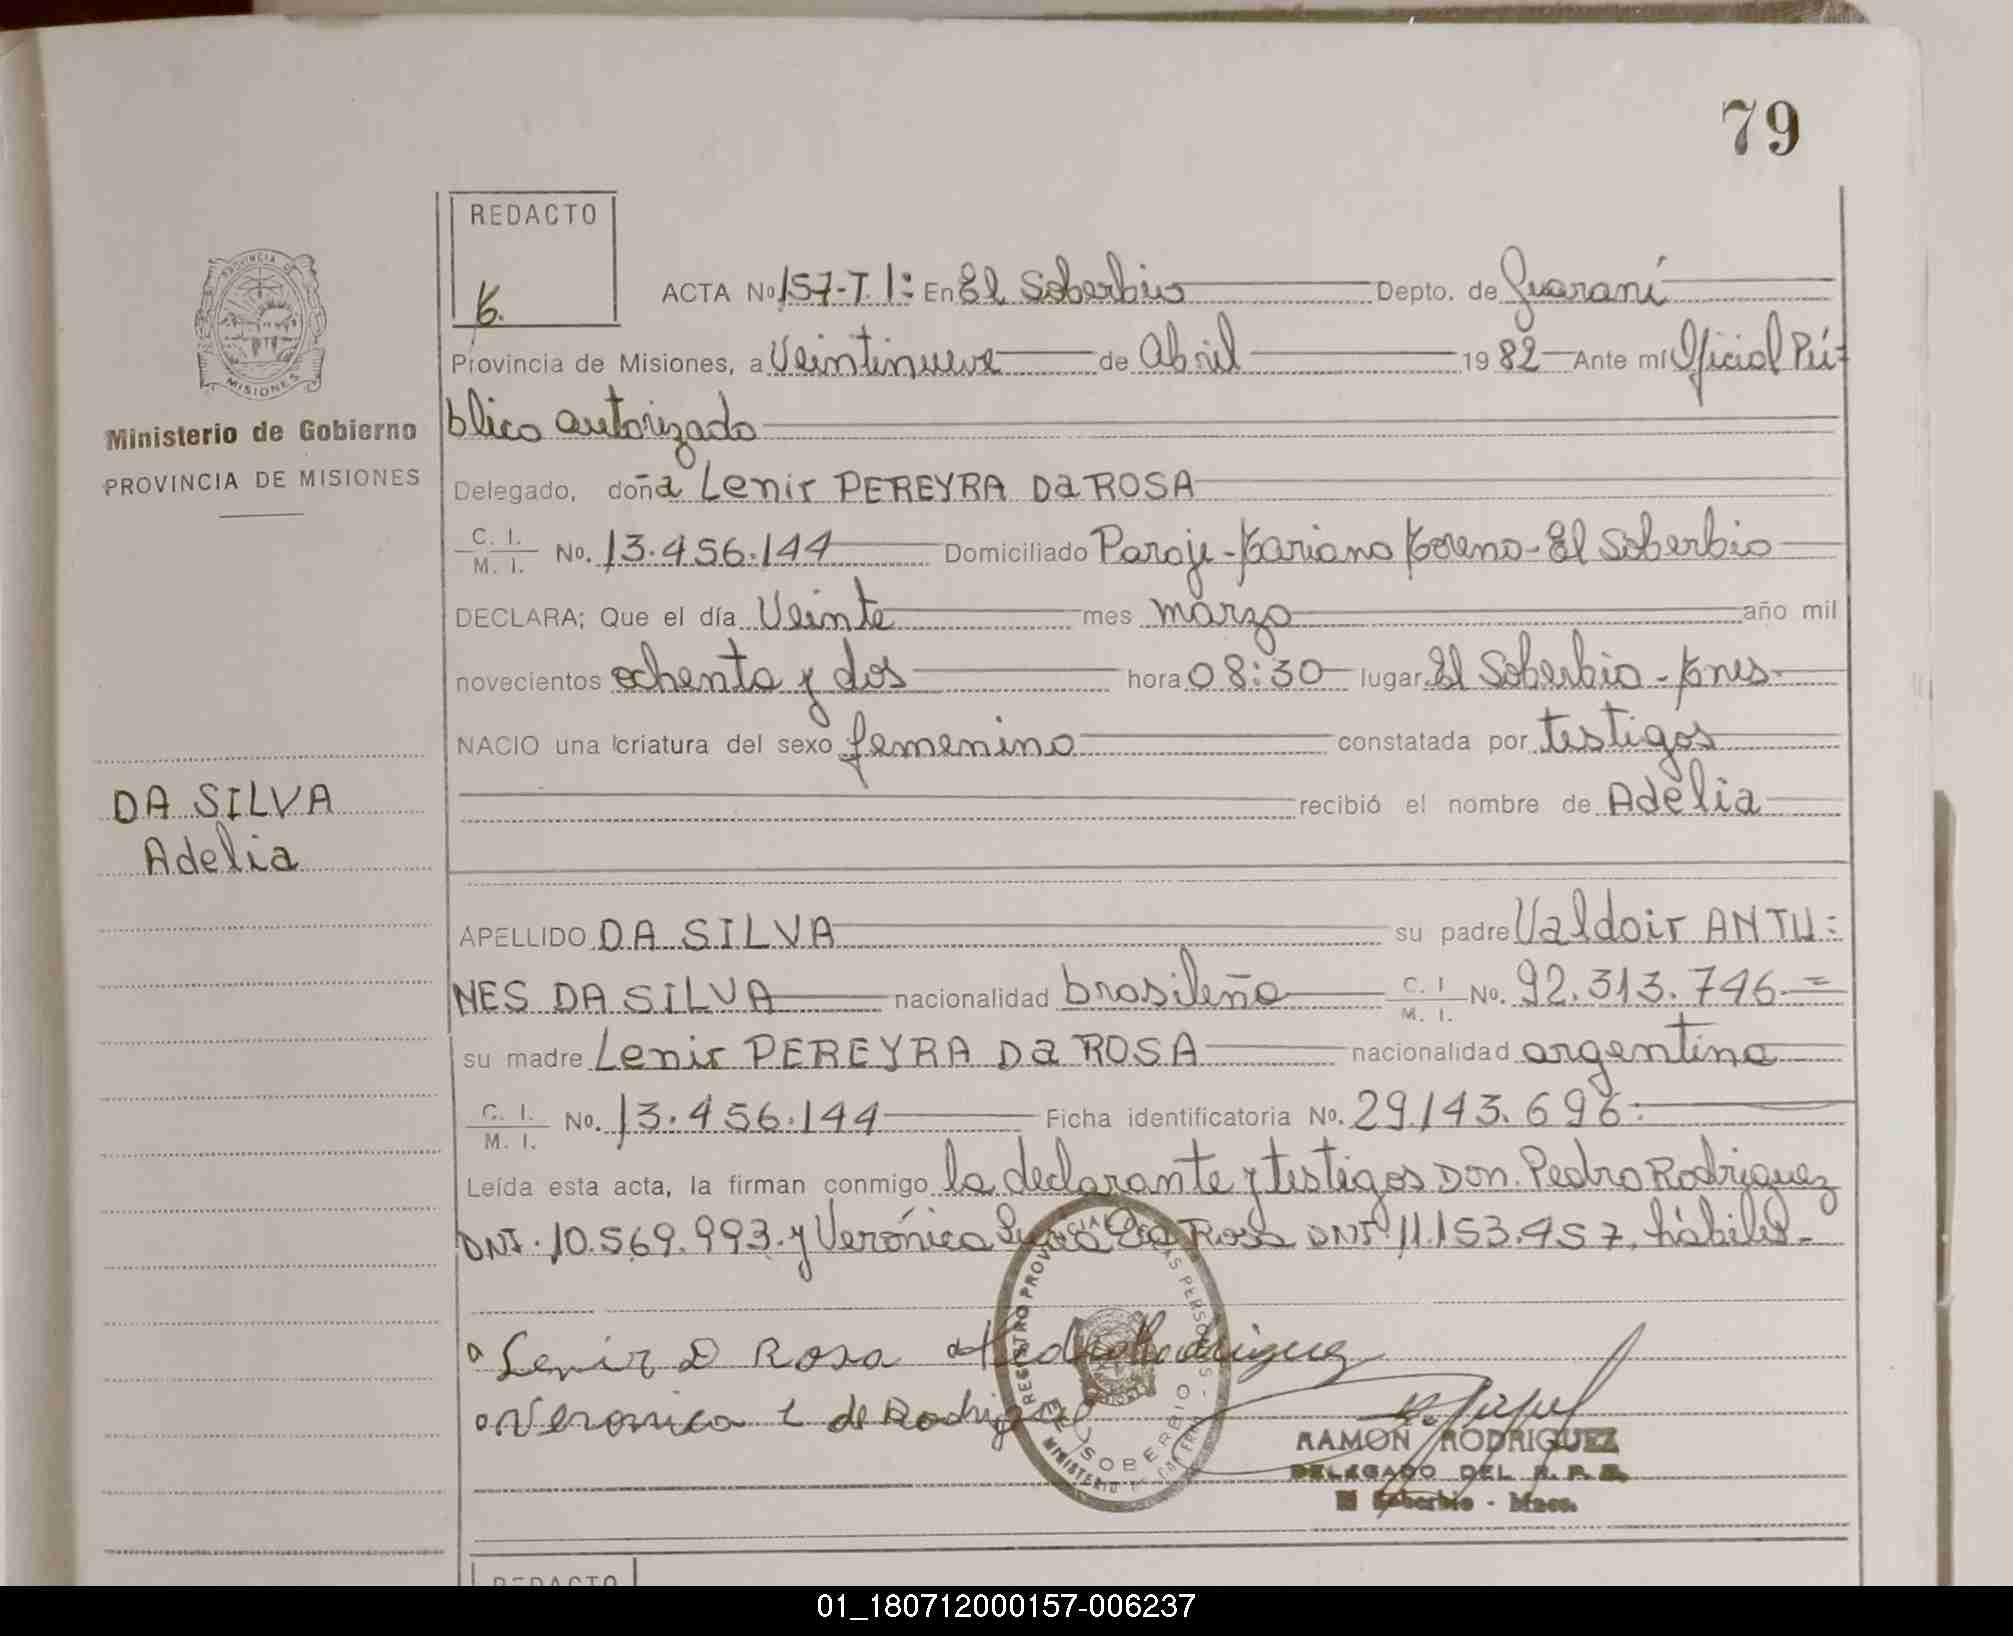 79
REDACTO
PROVINCIA DE
MISIONES
ACTA No 157-T.1: En El Soberbio Depto. de Guaraní
Provincia de Misiones, a Veintinueve de Abril 1982 Ante mí Oficial Pú-
blico autorizado
Ministerio de Gobierno
PROVINCIA DE MISIONES
Delegado, doña Lenir PEREYRA Da ROSA
C. I.
M. I. No. 13.456.144 Domiciliado Paraje - Mariano Moreno - El Soberbio
DECLARA; Que el día Veinte mes marzo año mil
novecientos ochenta y dos hora 08:30 lugar El Soberbio - Mnes
NACIO una criatura del sexo femenino constatada por testigos
recibió el nombre de Adelia
DA SILVA
Adelia
APELLIDO DA SILVA su padre Valdoir ANTU=
NES DA SILVA nacionalidad brasileña C. I
M. I. No. 92.313.746=
su madre Lenir PEREYRA Da ROSA nacionalidad argentina
C. I.
M. I. No. 13.456.144 Ficha identificatoria No. 29.143.696.
Leída esta acta, la firman conmigo la declarante y testigos Don. Pedro Rodriguez
DNI. 10.569.993. y Verónica Da Rosa DNI 11.153.457, hábiles-
Lenir D Rosa Pedro Rodriguez
Veronica L de Rodriguez
REGISTRO PROVINCIAL DE LAS PERSONAS - MINISTERIO DE GOBIERNO
EL SOBERBIO
RAMON RODRIGUEZ
DELEGADO DEL R. P. P.
El Soberbio - Mnes.
REDACTO
01_180712000157-006237